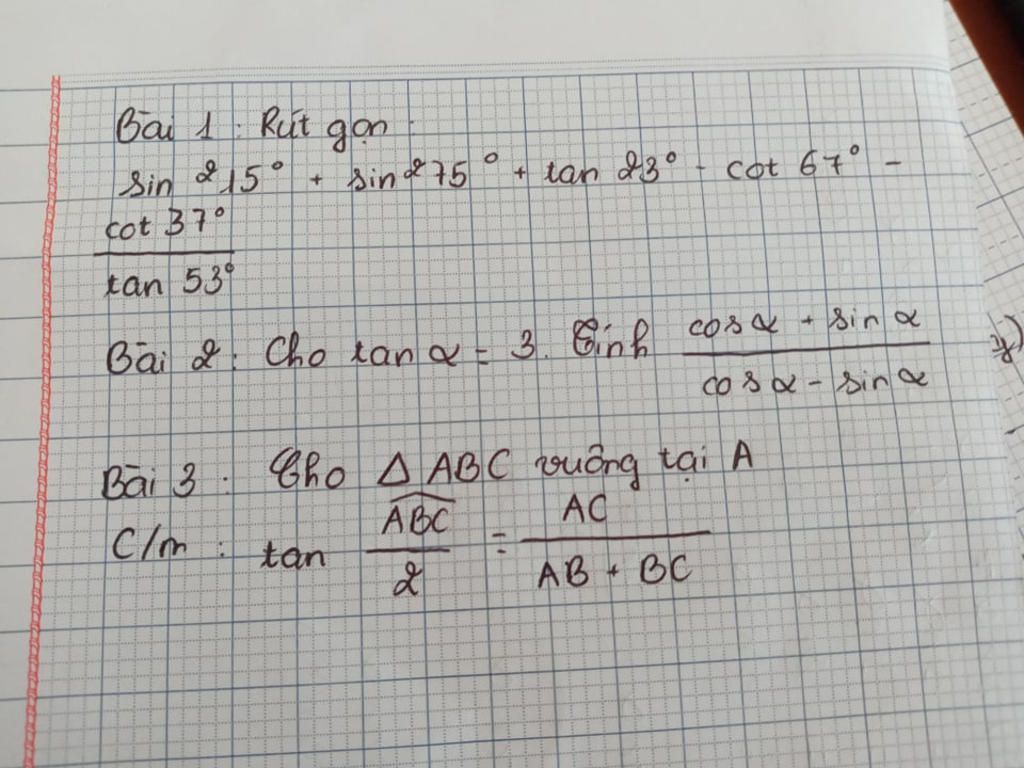 Bài 1 : Rút gọn :
sin 215° + sin 275° + tan 23° - cot 67° -
cot 37°
tan 53°
Bài 2 : Cho tan α = 3. Tính cosα + sin α
cosα - sinα
Bài 3 : Cho Δ ABC vuông tại A
C/m : tan ABC / 2 = AC / AB + BC